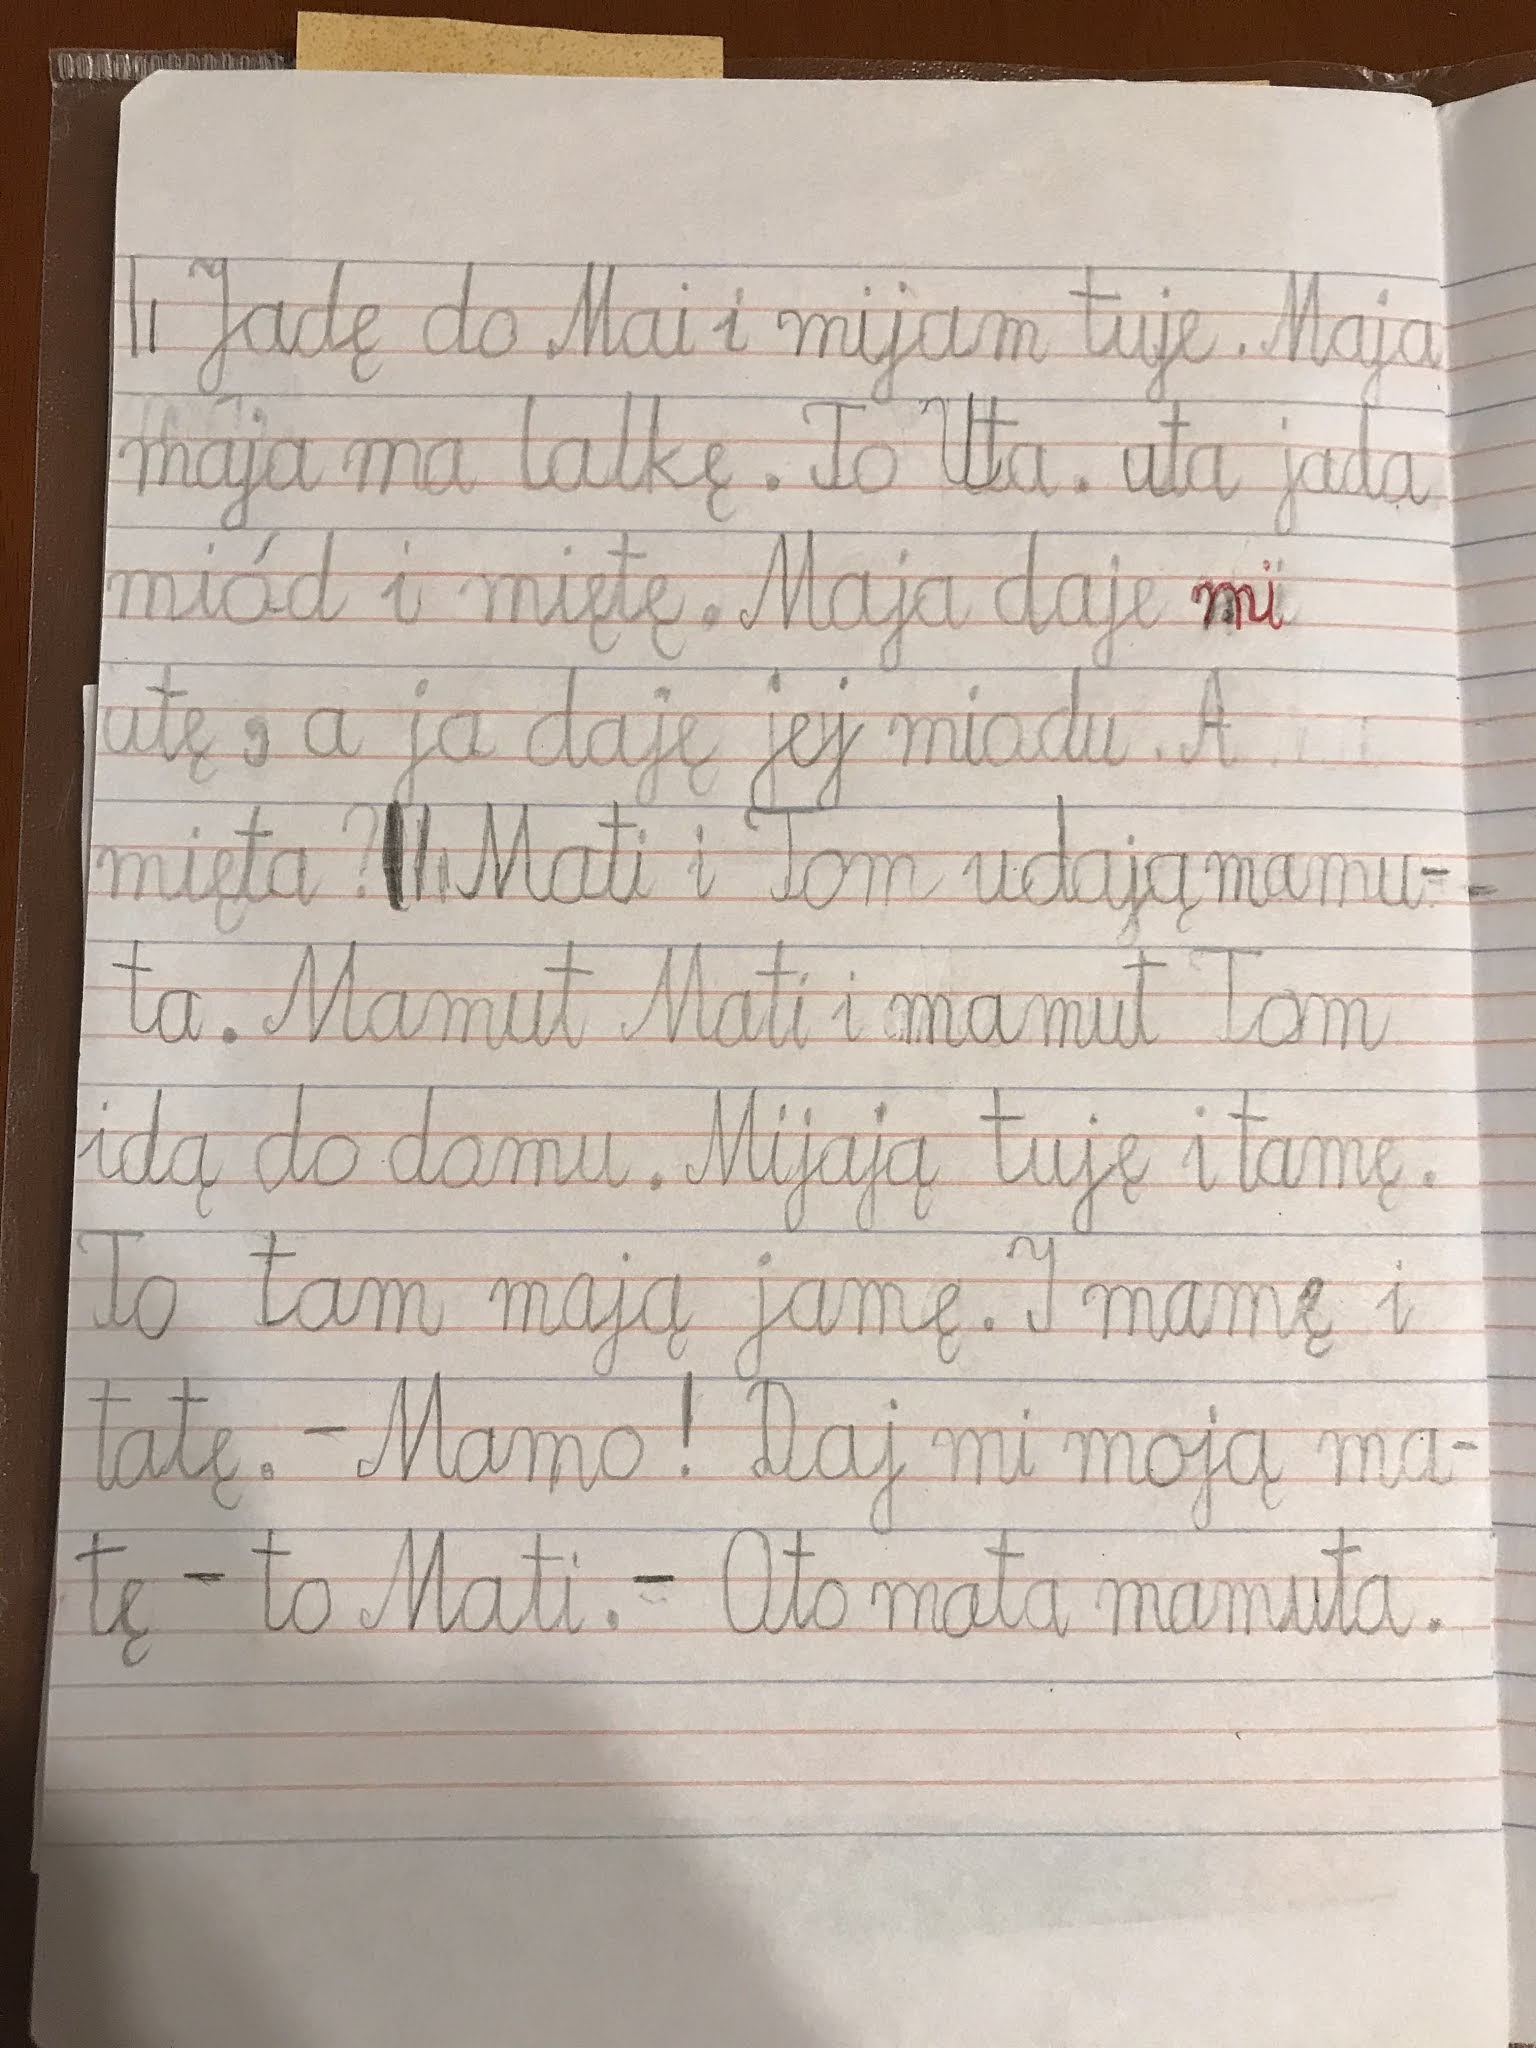 Jadę do Mai i mijam tuje. Maja
maja ma lalkę. To Uta. uta jada
miód i miętę. Maja daje mi
utę, a ja daję jej miodu. A
mięta? Mati i Tom udają mamu-
ta. Mamut Mati i mamut Tom
idą do domu. Mijają tuję i tamę.
To tam mają jamę. I mamę i
tatę. - Mamo! Daj mi moją ma-
tę - to Mati. - Oto mata mamuta.